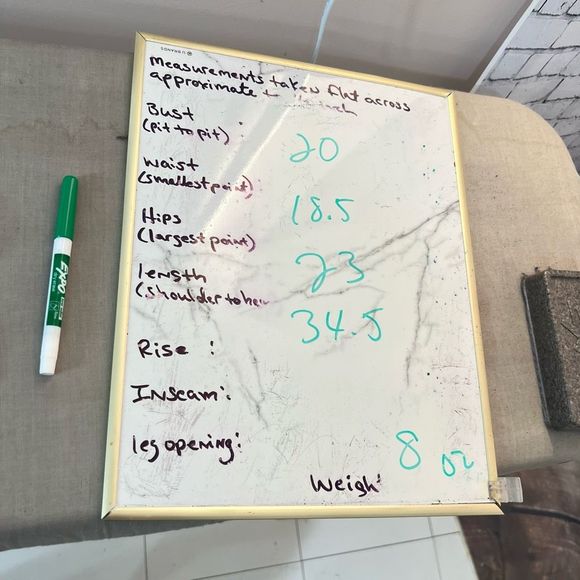 U BRANDS
Measurements taken flat across
approximate
Bust : 20
(pit to pit)
Waist
(smallest point) 18.5
Hips
(largest point) 23
length
(shoulder to hem 34.5
Rise :
Inseam :
leg opening :
8 oz
Weigh:
EXPO